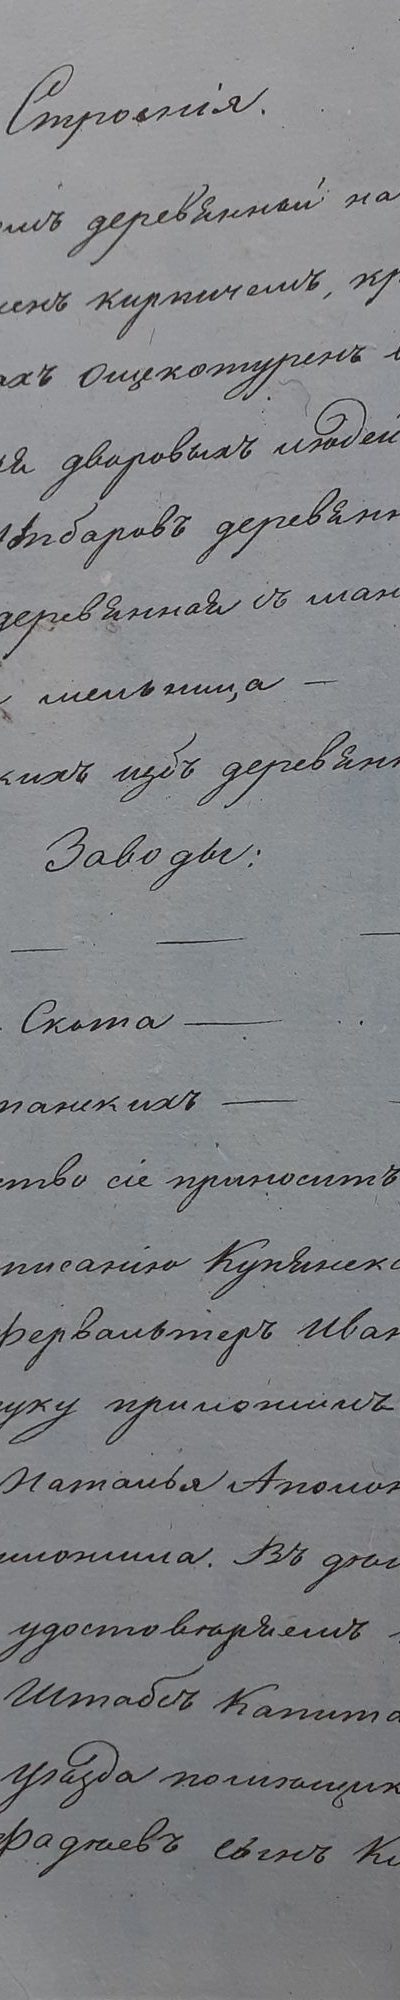 Строенія.
деревянный на
кирпичемъ, кр
ощекотуренъ
дворовыхъ людей
Анбаровъ деревянн
деревянная съ ман
мельница —
кихъ избъ деревянн
Заводы:
— — —
Скота —
танскихъ — —
ство сіе приноситъ
писанію Купянско
Фервальтеръ Иван
руку приложилъ
Наталья Аполон
иложила. Въ дол
удостовѣряемъ
Штабсъ Капита
уѣзда помѣщик
Фадѣевъ сынъ К